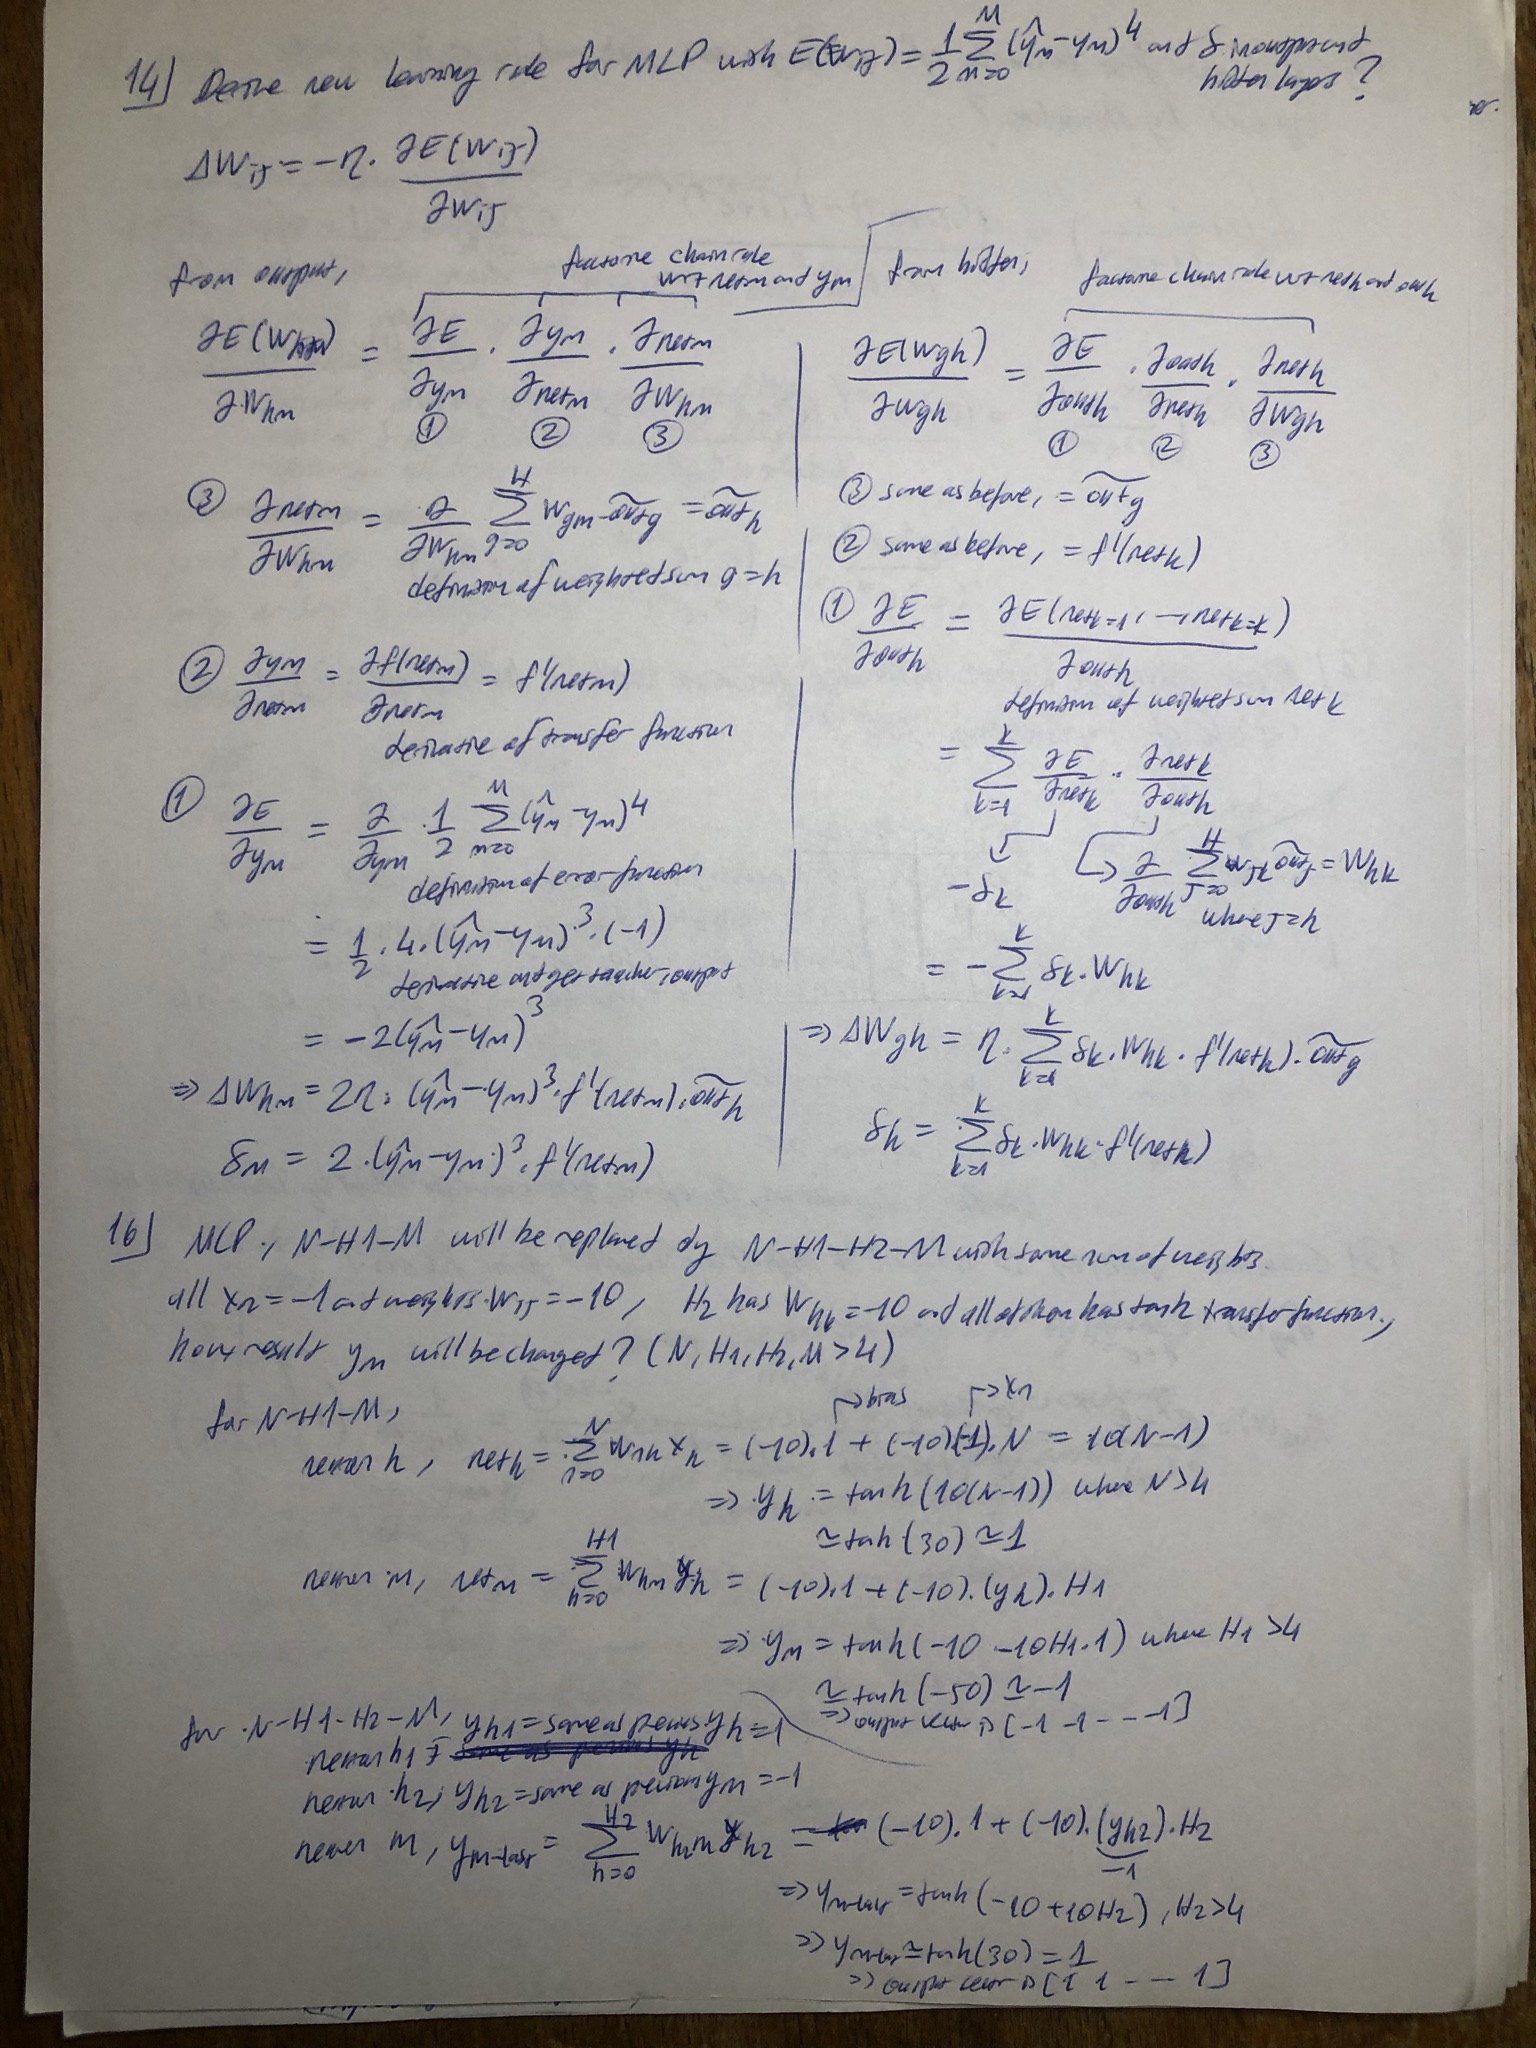 14) Derive new learning rule for MLP with E(w_ij) = 1/2 Σ_{m=0}^{M} (ŷm − ym)^4 and δ in output and hidden layers?
ΔW_ij = −η · ∂E(W_ij) / ∂W_ij
from output,
factorize chain rule wrt net_m and y_m
∂E(W_hm)/∂W_hm = ∂E/∂y_m · ∂y_m/∂net_m · ∂net_m/∂W_hm
① ② ③
③ ∂net_m/∂W_hm = ∂/∂W_hm Σ_{g=0}^{H} W_gm · õut_g = õut_h
definition of weighted sum g=h
② ∂y_m/∂net_m = ∂f(net_m)/∂net_m = f'(net_m)
derivative of transfer function
① ∂E/∂y_m = ∂/∂y_m · 1/2 Σ_{m=0}^{M} (ŷm − ym)^4
definition of error function
= 1/2 · 4 · (ŷm − ym)^3 · (−1)
derivative and get teacher, output
= −2(ŷm − ym)^3
⇒ ΔW_hm = 2η · (ŷm − ym)^3 · f'(net_m) · õut_h
δ_m = 2 · (ŷm − ym)^3 · f'(net_m)
from hidden,
factorize chain rule wrt net_h and out_h
∂E(W_gh)/∂W_gh = ∂E/∂out_h · ∂out_h/∂net_h · ∂net_h/∂W_gh
① ② ③
③ same as before, = õut_g
② same as before, = f'(net_h)
① ∂E/∂out_h = ∂E(net_k=1, ..., net_k=K) / ∂out_h
definition of weighted sum net_k
= Σ_{k=1}^{K} ∂E/∂net_k · ∂net_k/∂out_h
−δ_k
∂/∂out_h Σ_{j=0}^{H} W_jk õut_j = W_hk
where j=h
= −Σ_{k=1}^{K} δ_k · W_hk
⇒ ΔW_gh = η · Σ_{k=1}^{K} δ_k · W_hk · f'(net_h) · õut_g
δ_h = Σ_{k=1}^{K} δ_k · W_hk · f'(net_h)
16) MLP, N−H1−M will be replaced by N−H1−H2−M with same num of weights.
all x_n = −1 and weights W_ij = −10, H2 has W_hk = −10 and all of them has tanh transfer function,
how result y_m will be changed? (N, H1, H2, M > 4)
for N−H1−M,
→ bias → x_n
neuron h, net_h = Σ_{n=0}^{N} W_nh x_n = (−10)·1 + (−10)(−1)·N = 10(N−1)
⇒ y_h = tanh(10(N−1)) where N>4
≃ tanh(30) ≃ 1
neuron m, net_m = Σ_{h=0}^{H1} W_hm y_h = (−10)·1 + (−10)·(y_h)·H1
⇒ y_m = tanh(−10 − 10H1·1) where H1 > 4
≃ tanh(−50) ≃ −1
⇒ output vector is [−1 −1 − − −1]
for N−H1−H2−M,
neuron h1, y_h1 = same as previous y_h = 1
neuron h2, y_h2 = same as previous y_m = −1
neuron m, y_m-last = Σ_{h=0}^{H2} W_h2m y_h2 = (−10)·1 + (−10)·(y_h2)·H2
−1
⇒ y_m-last = tanh(−10 + 10H2), H2>4
⇒ y_m-last ≃ tanh(30) = 1
⇒ output vector is [1 1 − − 1]